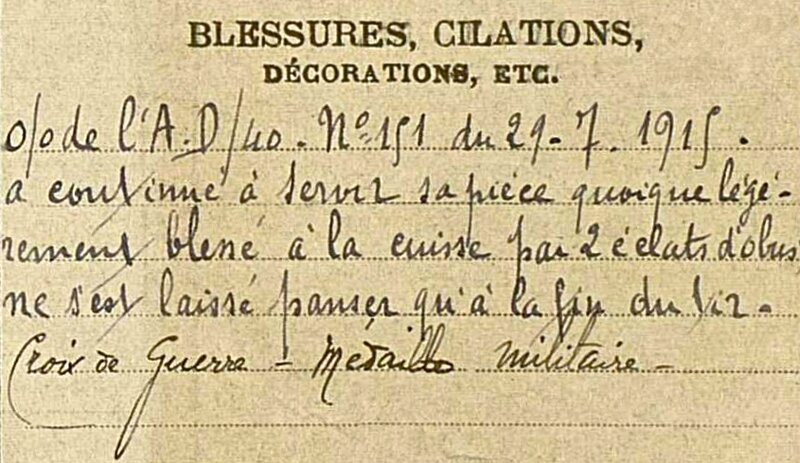 BLESSURES, CILATIONS,
DÉCORATIONS, ETC.
o/o de l'A.D/40. N° 151 du 29-7. 1915.
a continué à servir sa pièce quoique légé-
rement blessé à la cuisse par 2 éclats d'obus
ne s'est laissé panser qu'à la fin du tir.
Croix de Guerre - Médaille militaire -